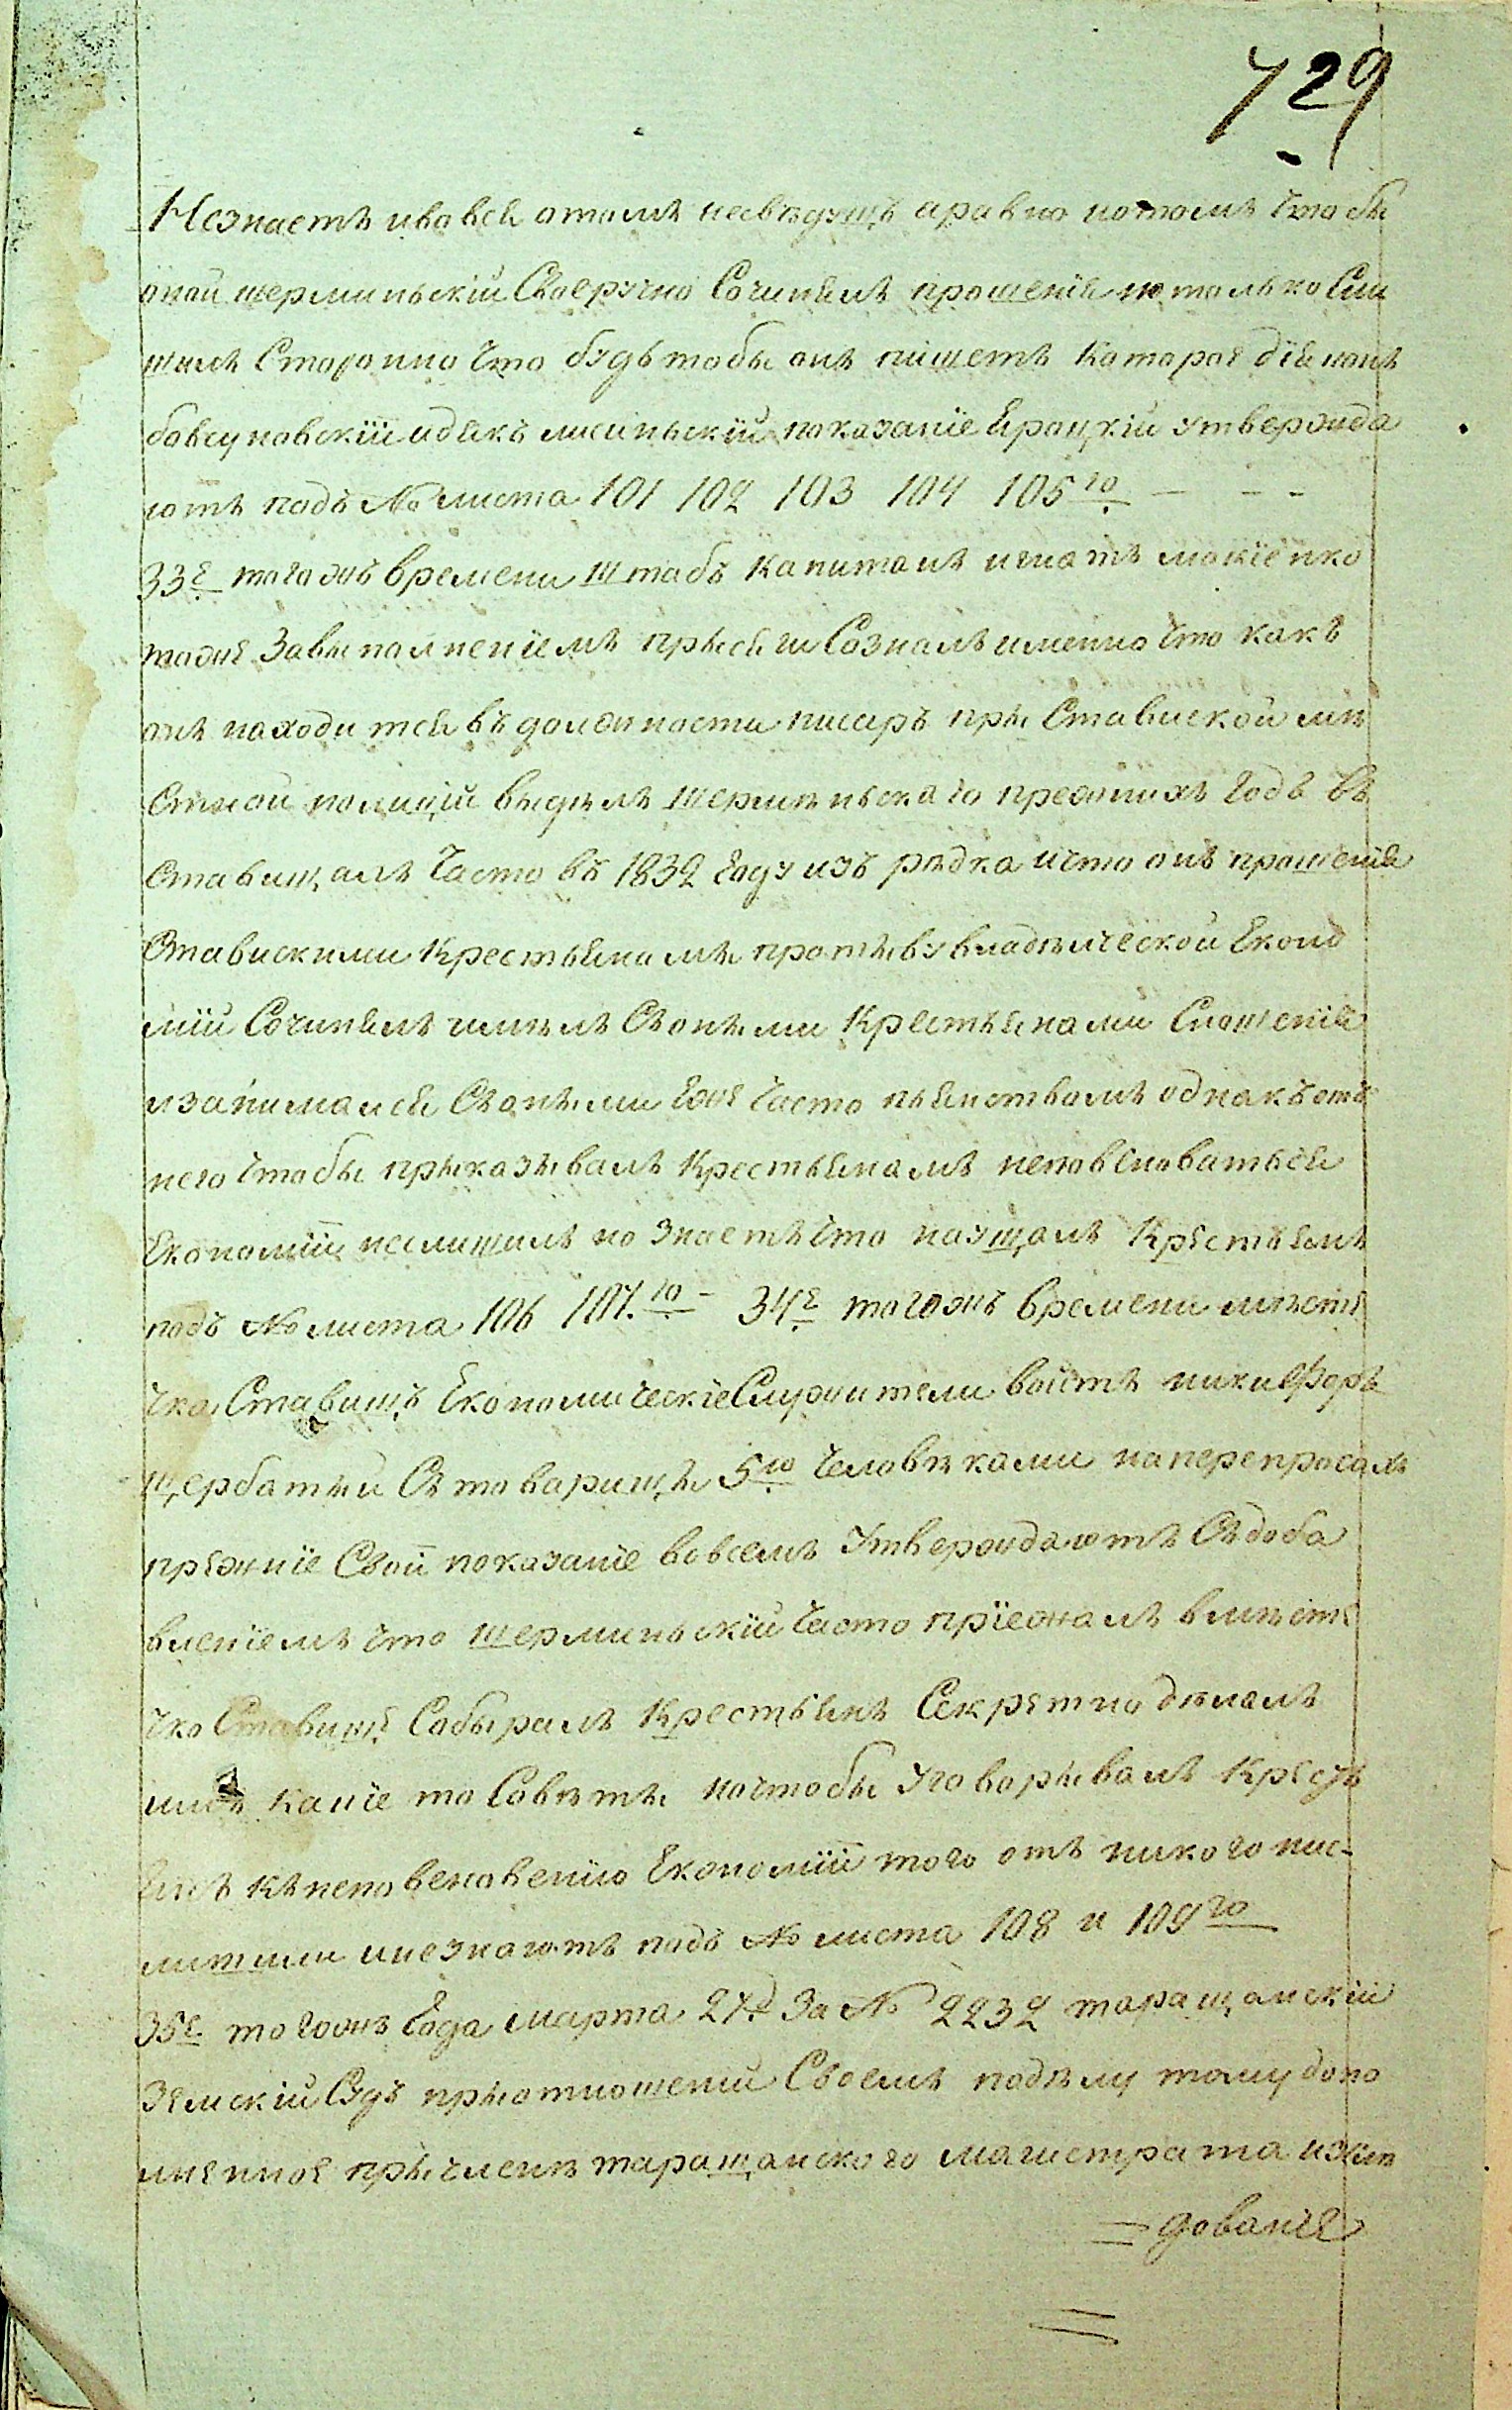 729
Незнаетъ ивовся отомъ несвѣдущъ аравно потомъ чтобы
оной шерминьскій Своеручно Сочинялъ прошенія но только Слы
шалъ Сторонно что будьтобы онъ пишетъ которое діяконъ
бовсуновскій идякъ лисиньскій показаніе Ерацкій утвержда
ютъ подъ № листа 101 102 103 104 105го — - -
33е тогожъ времени штабъ капитанъ игнатъ мокіенко
тоже Завыполненіемъ прысяги Созналъ именно что какъ
онъ находитсявъ должности писаръ пры Ставиской мѣ
Стной полиціи выдѣлъ шерминьскаго прежнихъ годъ въ
Ставищахъ Часто въ 1832 Году изърѣдка ичто онъ прошенія
Ставискими Крестьянамы протывувладѣлческой Еконо
міи Сочинялъ иимѣлъ Сѣонымы Крестьянами Сношенія
изанимался Сѣонымы Еже Часто пьянствомъ однакъ отъ
него чтобы прыказывалъ Крестьянамъ неповеноваться
Економіи неслишилъ но знаетъ что наущалъ Крестьянъ
подъ № листа 106 107.го - 34е тогожъ времени мѣсте
чка Ставищъ ЕкономическіеСлужители войтъ никифоръ
щербатый Стоварищы 5ю человѣками наперепросахъ
прежніе Свои показаніе вовсемъ Утверждаютъ Сѣдоба
вленіемъ что шерминьскій Часто пріежалъ вмѣсте
чко Ставище Собыралъ Крестьянъ Секретно дѣлалъ
какіе то Совѣты ночтобы Уговорывалъ Кресть
янъ кънеповеновенію Економіи того отъ никого нис-
лышили инезнаютъ подъ № листа 108 и 109го
35е тогожъ Года марта 27д За № 2232 таращанскій
Земскій Судъ прыотношеніи Своемъ подѣлу тому допо
лненное прычленѣ таращанского магистрата изслѣ
= дованіе